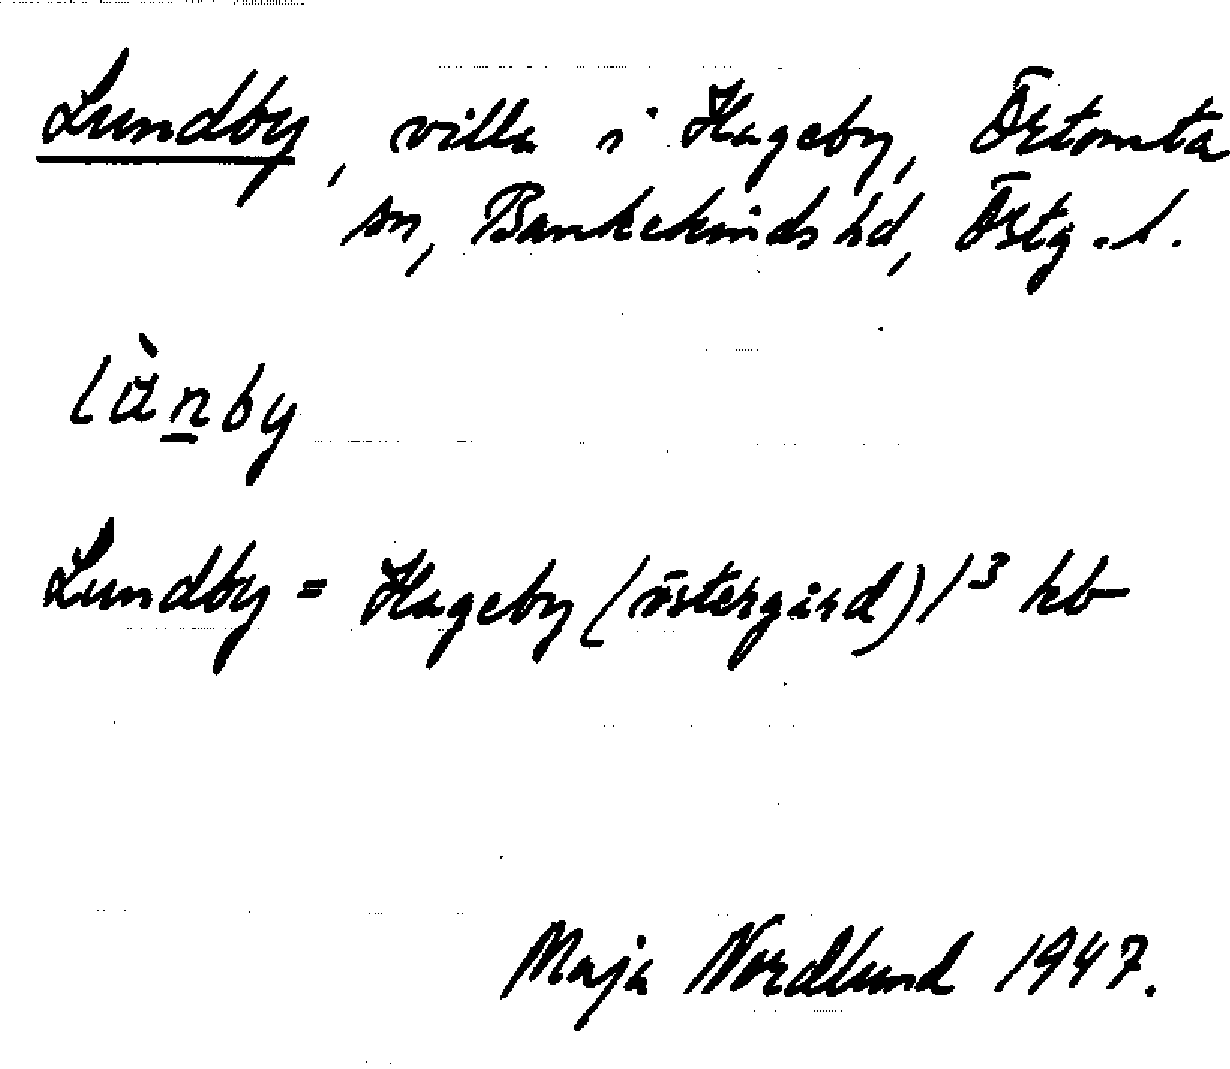 Lundby, villa i Hageby, Örtomta
sn, Bankekinds hd, Östg. l.
lànby
Lundby = Hageby (östergård) 1³ hb
Maja Nordlund 1947.